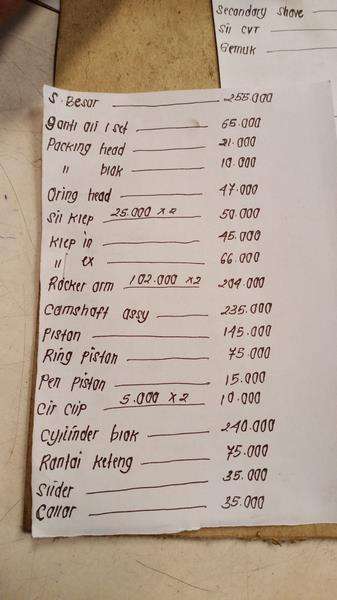 Secondary shave
Sil CVT
Gemuk
S. Besar 255.000
ganti oli 1 set 65.000
Packing head 21.000
" blok 10.000
Oring head 47.000
Sil klep 25.000 x 2 50.000
Klep in 45.000
" ex 66.000
Rocker arm 102.000 x 2 204.000
Camshaft assy 235.000
Piston 145.000
Ring piston 75.000
Pen piston 15.000
Cir clip 5.000 x 2 10.000
Cylinder blok 240.000
Rantai keteng 75.000
Slider 35.000
Collar 35.000